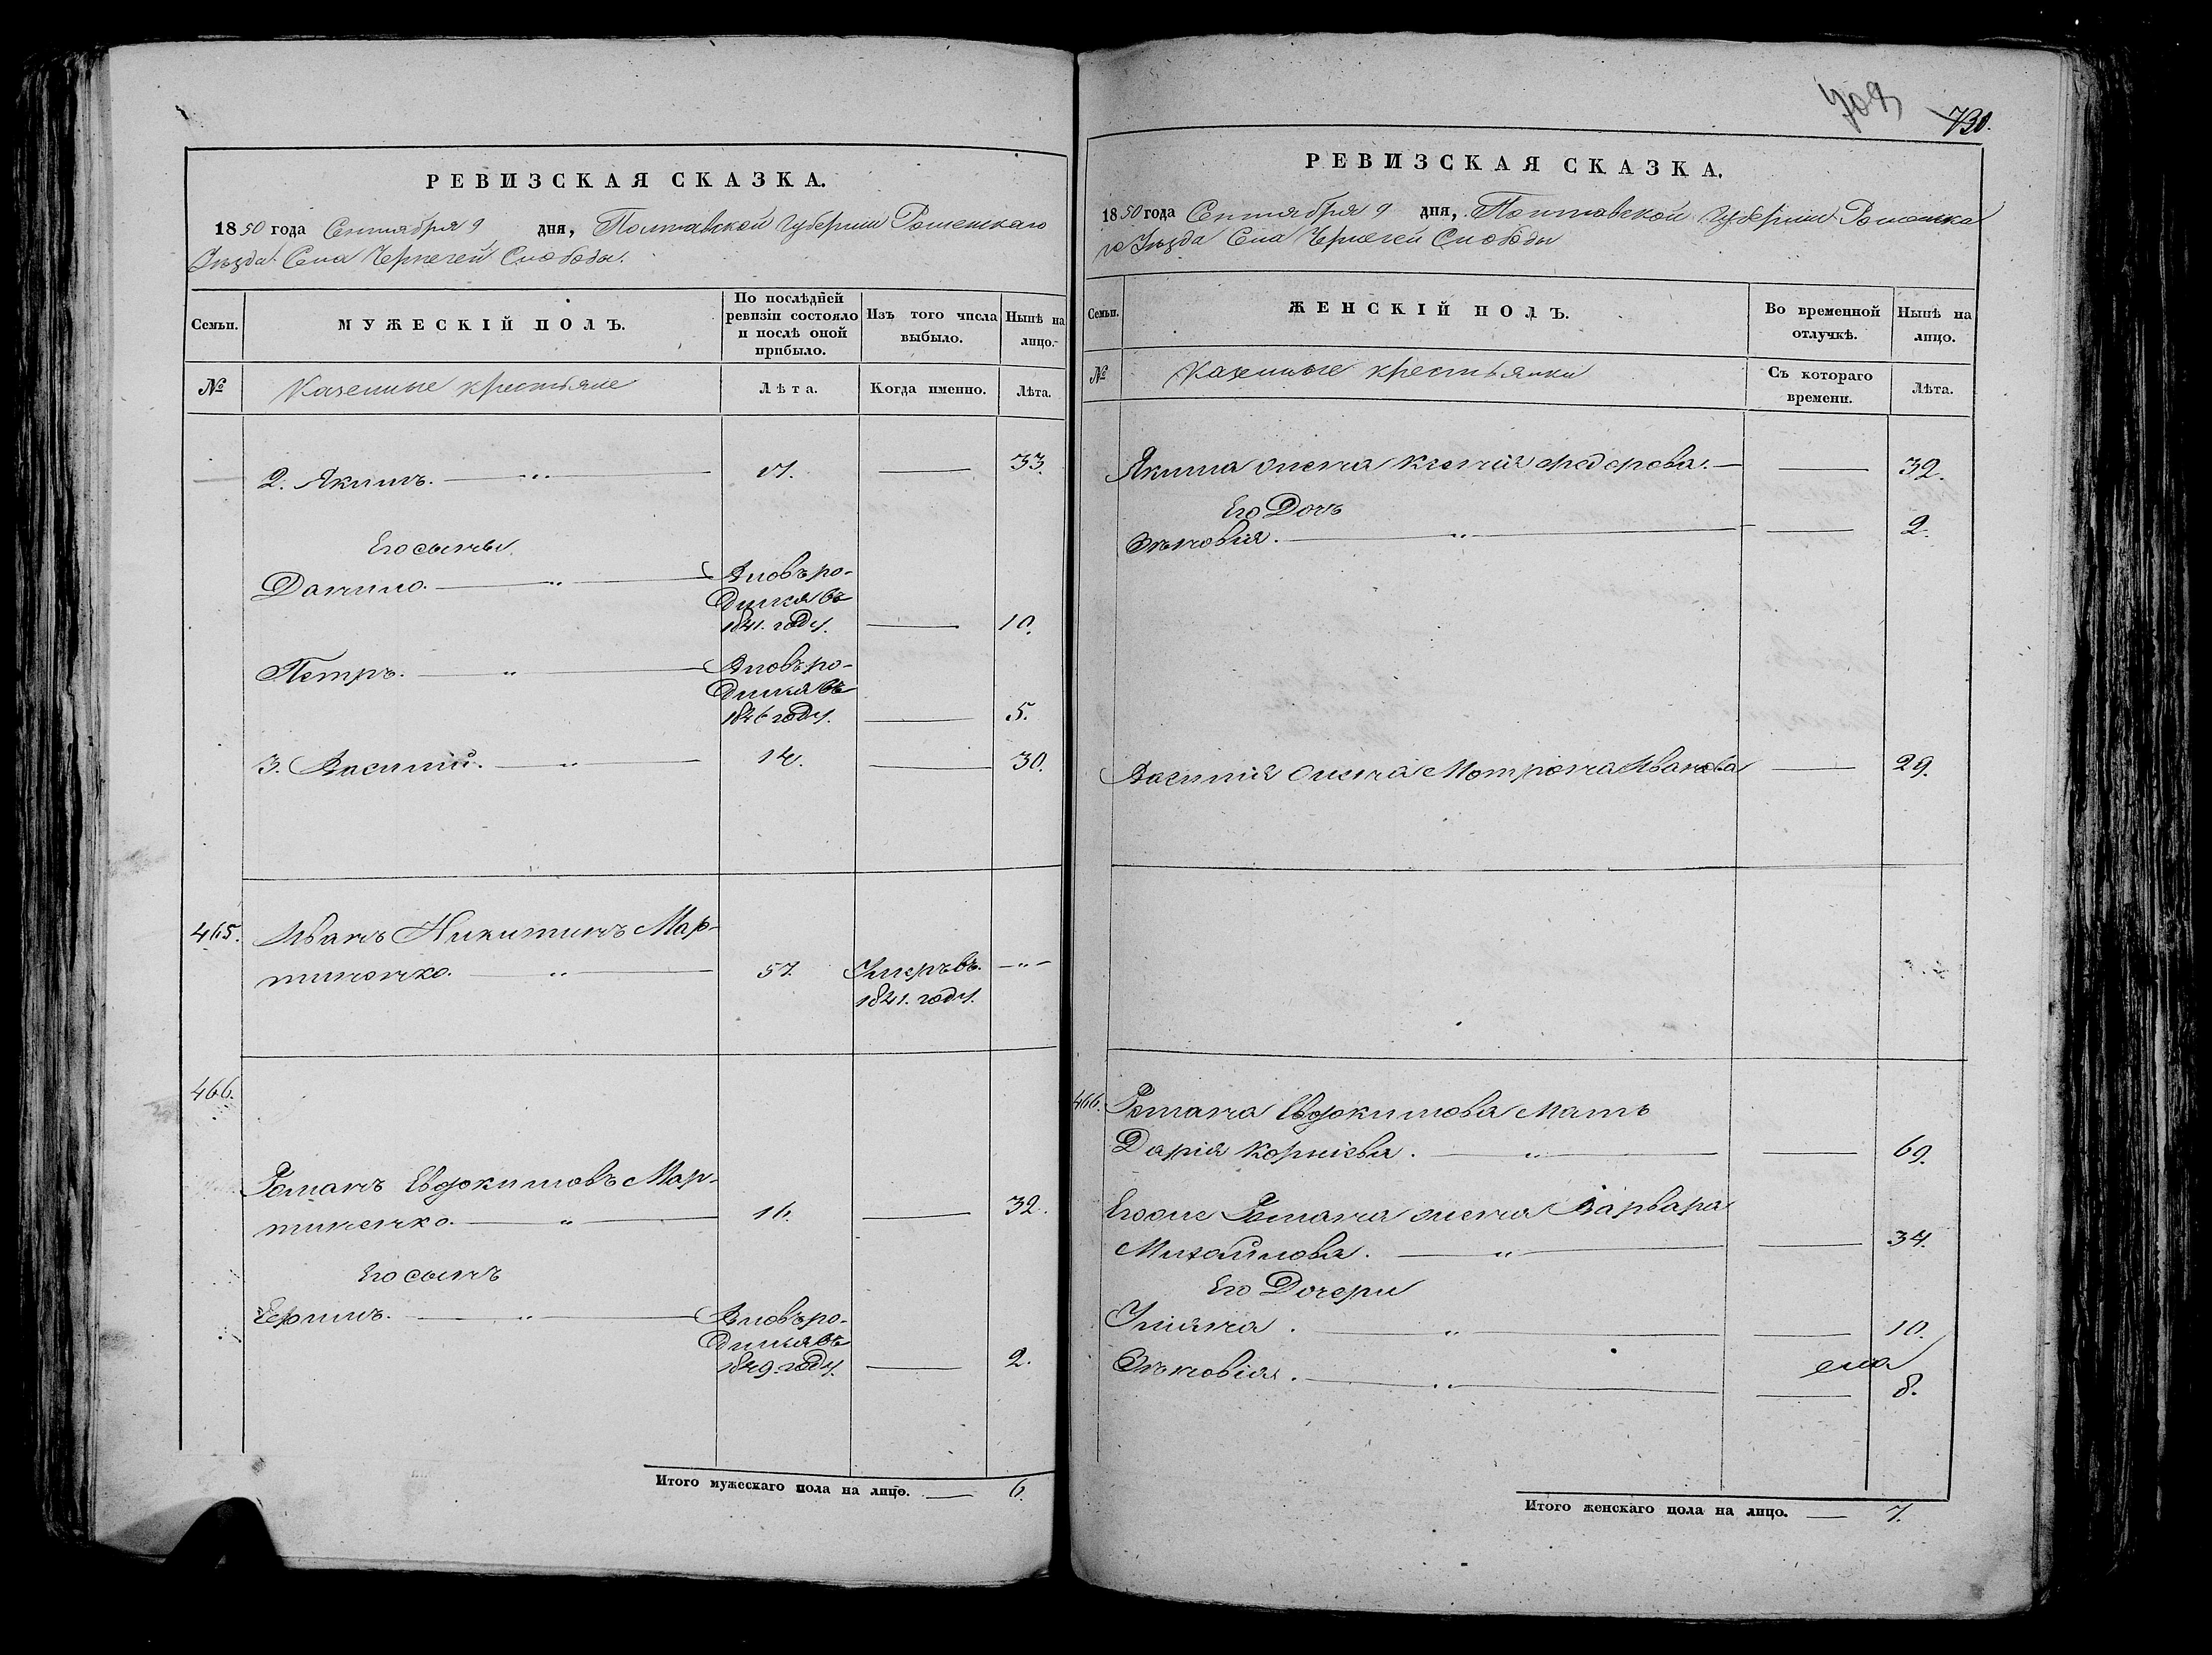 РЕВИЗСКАЯ СКАЗКА.
1850 года Сентября 9 дня, Полтавской Губернии Роменскаго
Уезда Села Чернечей Слободы.
Семьи.
МУЖЕСКІЙ ПОЛЪ.
По послѣдней
ревизіи состояло
и послѣ оной
прибыло.
Изъ того числа
выбыло.
Нынѣ на
лицо.
№
Казенные крестьяне
Лѣта.
Когда именно.
Лѣта.
2. Якимъ. — " — 17. — 33.
Его сыны
Данило. — " — Вновь ро-
дился въ
1841. году. — 10.
Петръ. — " — Вновь ро-
дился въ
1846 году. — 5.
3. Василий. — " — 14. — 30.
465. Иванъ Никитинъ Мар-
тиненко. — " — 57. Умеръ въ — " —
1841. году.
466.
Романъ Евдокимовъ Мар-
тиненко. — " — 16. — 32.
Его сынъ
Ефимъ. — " — Вновь ро-
дился въ
1849. году. — 2.
Итого мужескаго пола на лицо. — 6.
709
730.
РЕВИЗСКАЯ СКАЗКА.
1850 года Сентября 9 дня, Полтавской Губернии Роменска
го Уезда Села Чернечей Слободы
Семьи.
ЖЕНСКІЙ ПОЛЪ.
Во временной
отлучкѣ.
Нынѣ на
лицо.
№
Казенные крестьянки
Съ котораго
времени.
Лѣта.
Якима жена Ксенія Федорова. — — 32.
Его Дочь
Зѣновія. — " — — 2.
Василія жена Мотрона Иванова — 29.
466. Романа Евдокимова мать
Дарія Корніева. — " — — 69.
Егоже Романа жена Варвара
Михайлова. — " — — 34.
Его Дочери
Уліяна. — " — — 10.
Зѣновія. — " — — 8.
Итого женскаго пола на лицо. — 7.